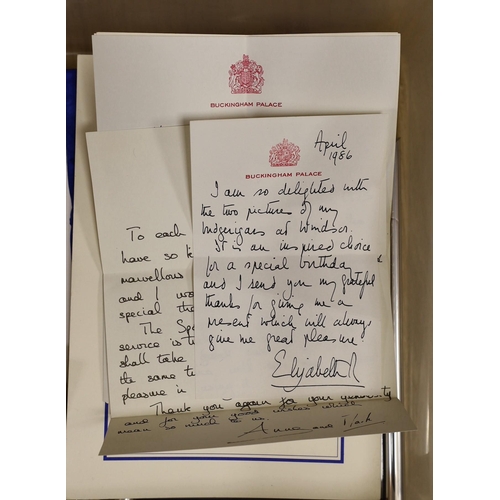 BUCKINGHAM PALACE
April
1986
BUCKINGHAM PALACE
I am so delighted with
the two pictures of my
budgerigars at Windsor.
It is an inspired choice
for a special birthday
and I send you my grateful
thanks for giving me a
present which will always
give me great pleasure
Elizabeth R
To each
have so
marvellous
and I wo
special the
The Spo
service is t
shall take
the same t
pleasure in
Thank you again for your generosity
and for your good wishes which
mean so much to us
Anne and